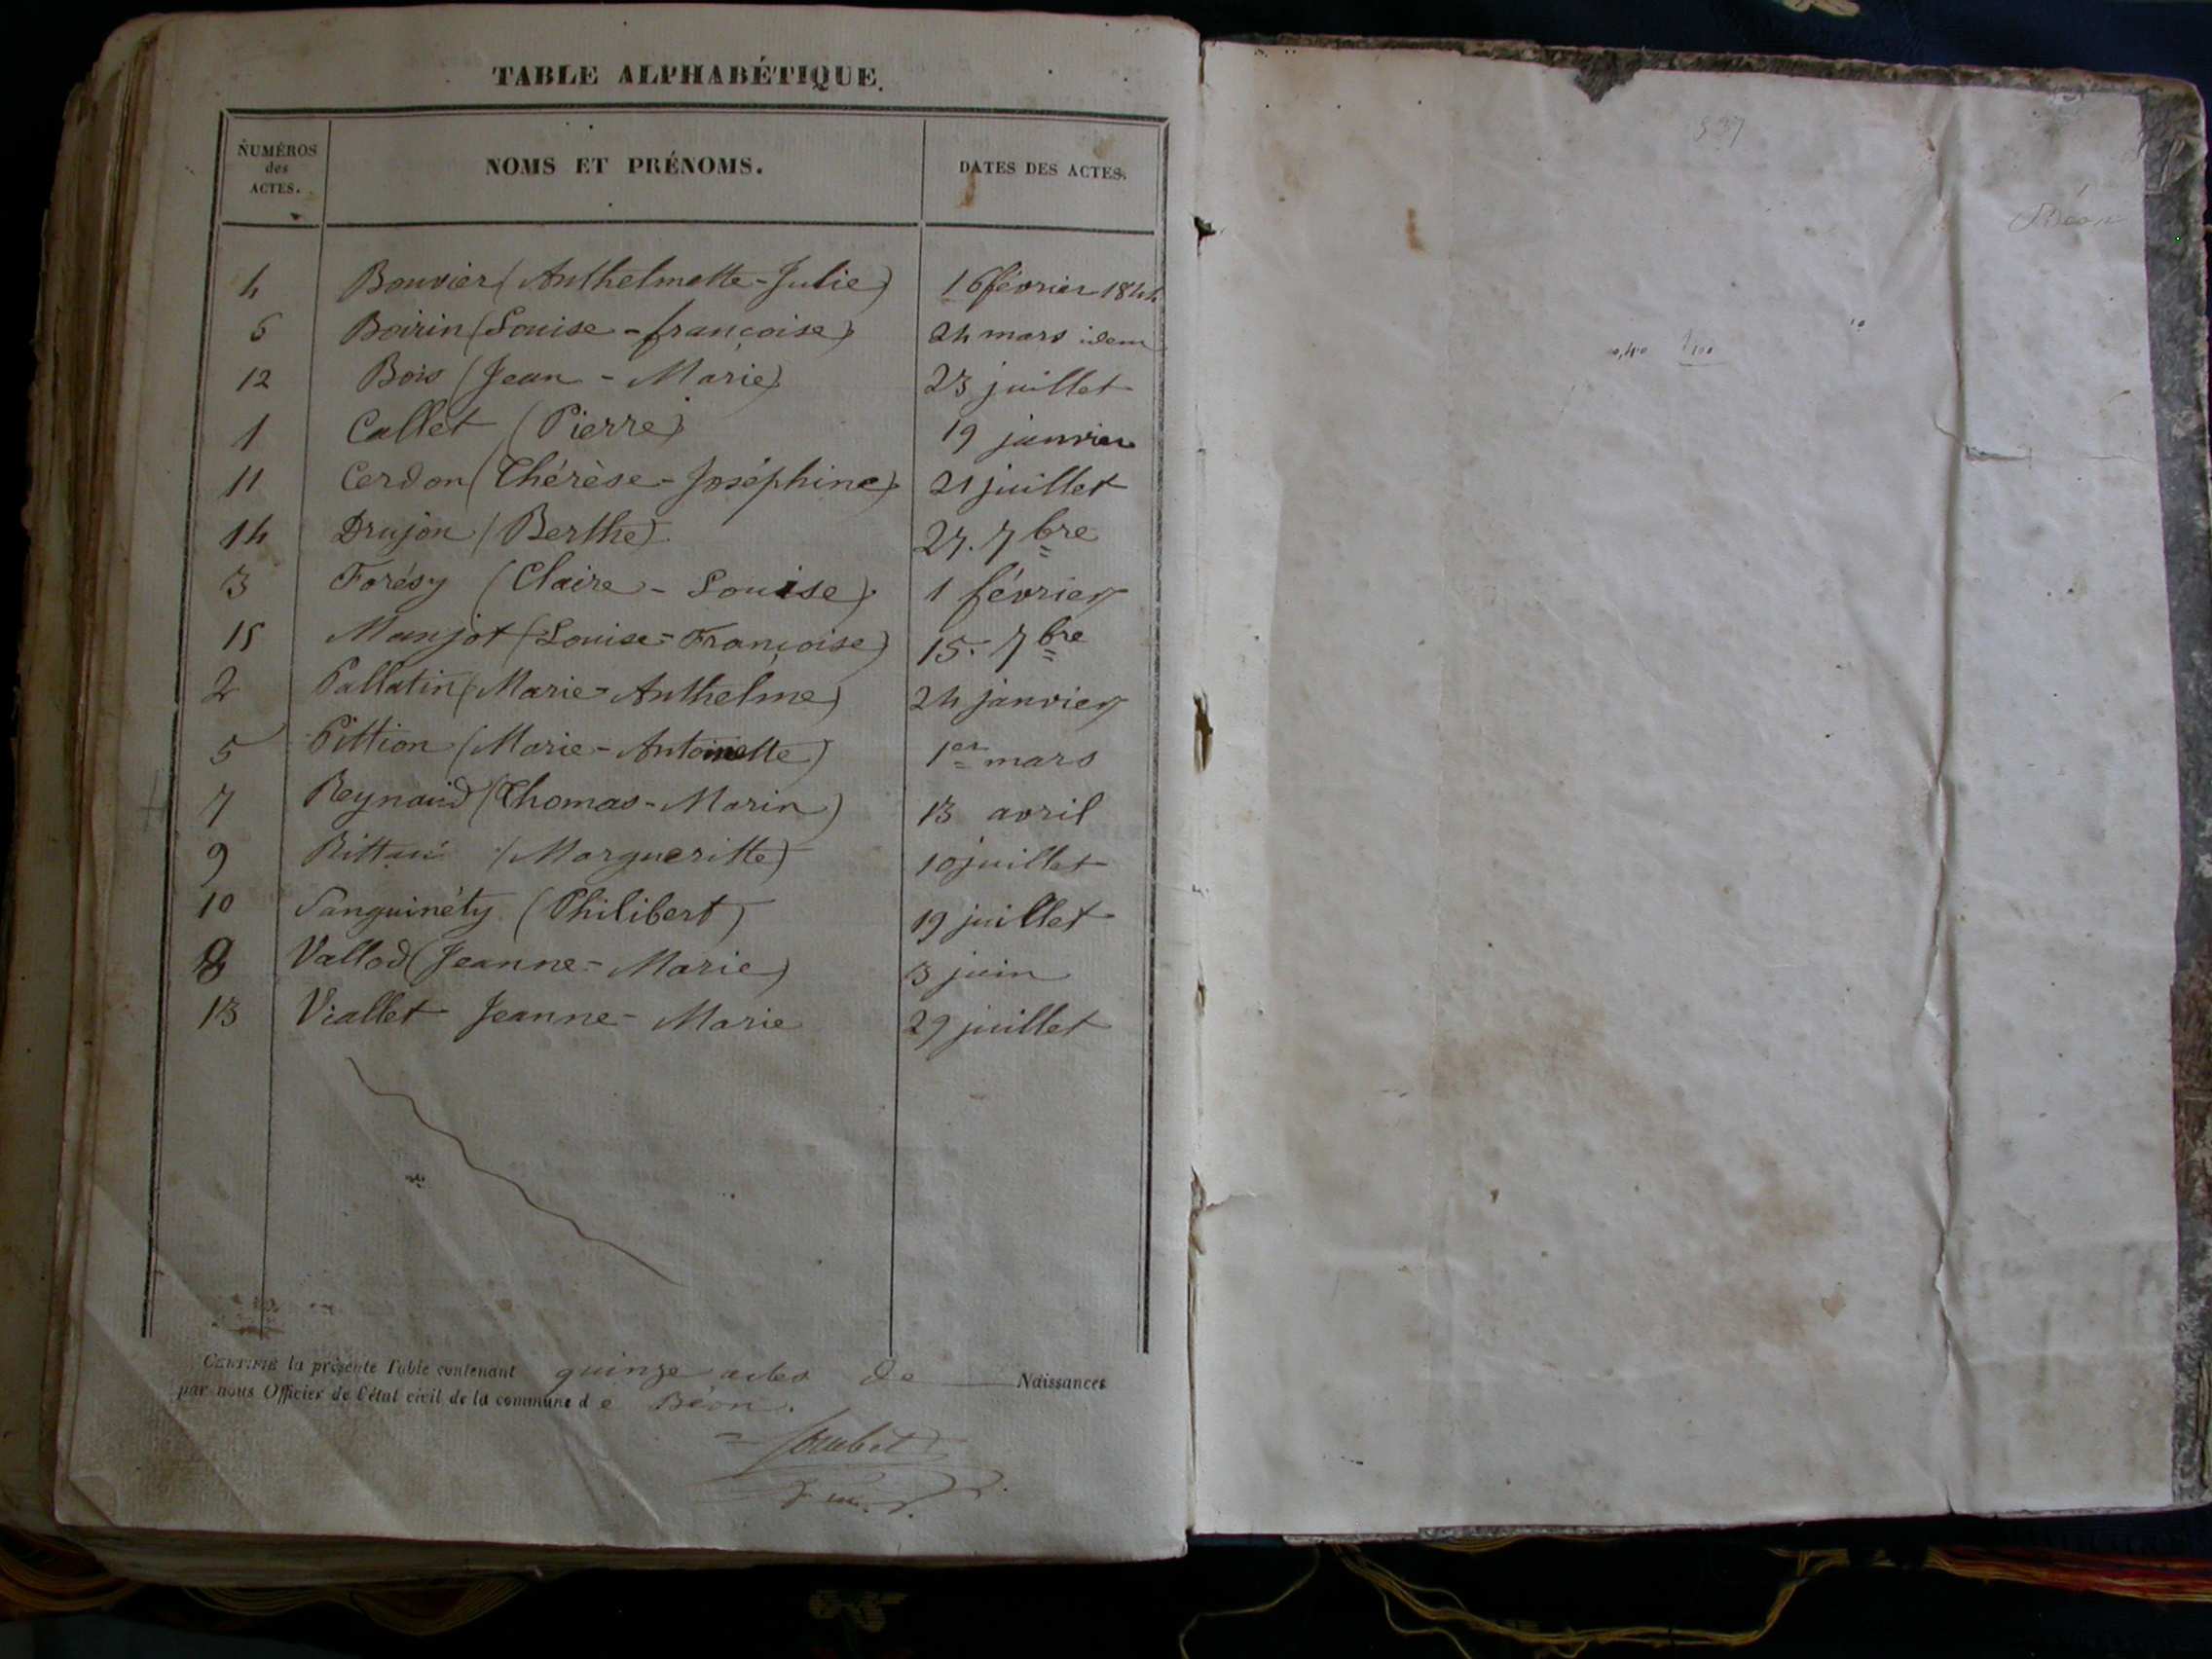 TABLE ALPHABÉTIQUE.
NUMÉROS
des
ACTES.
NOMS ET PRÉNOMS.
DATES DES ACTES.
4 Bouvier (Anthelmette-Julie) 16 février 1844
6 Boirin (Louise-françoise) 24 mars idem
12 Bois (Jean-Marie) 23 juillet
1 Callet (Pierre) 19 janvier
11 Cerdon (Thérèse-Joséphine) 21 juillet
14 Drujon (Berthe) 27. 7bre
3 Forésy (Claire-Louise) 1 février
15 Manjot (Louise-Françoise) 15. 7bre
2 Pallatin (Marie-Anthelme) 24 janvier
5 Pittion (Marie-Antoinette) 1er mars
7 Reynaud (Thomas-Marin) 13 avril
9 (Margueritte) 10 juillet
10 Sanguinéty (Philibert) 19 juillet
8 Vallod (Jeanne-Marie) 3 juin
13 Viallet Jeanne-Marie 29 juillet
CERTIFIÉ la présente Table contenant quinze actes de Naissances
par nous Officier de l'état civil de la commune de Béon.
837
Béon